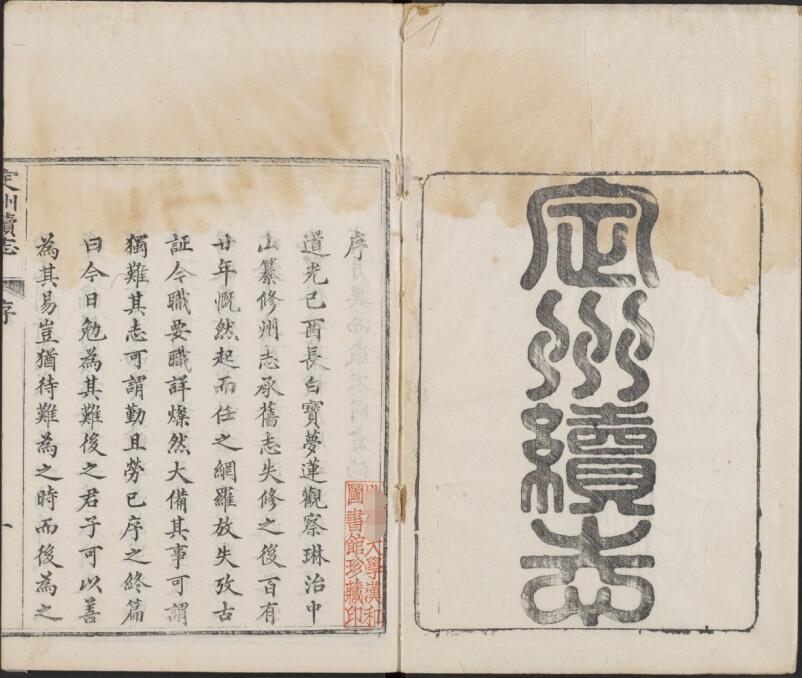 定州續志
大學漢和
圖書館珍藏印
序
道光己酉長白寶夢蓮觀察琳治中
山纂修州志承舊志失修之後百有
廿年慨然起而任之網羅放失攷古
証今職要職詳燦然大備其事可謂
獨難其志可謂勤且勞已序之終篇
曰今日勉為其難後之君子可以善
為其易豈猶待難為之時而後為之
定州續志 序 一